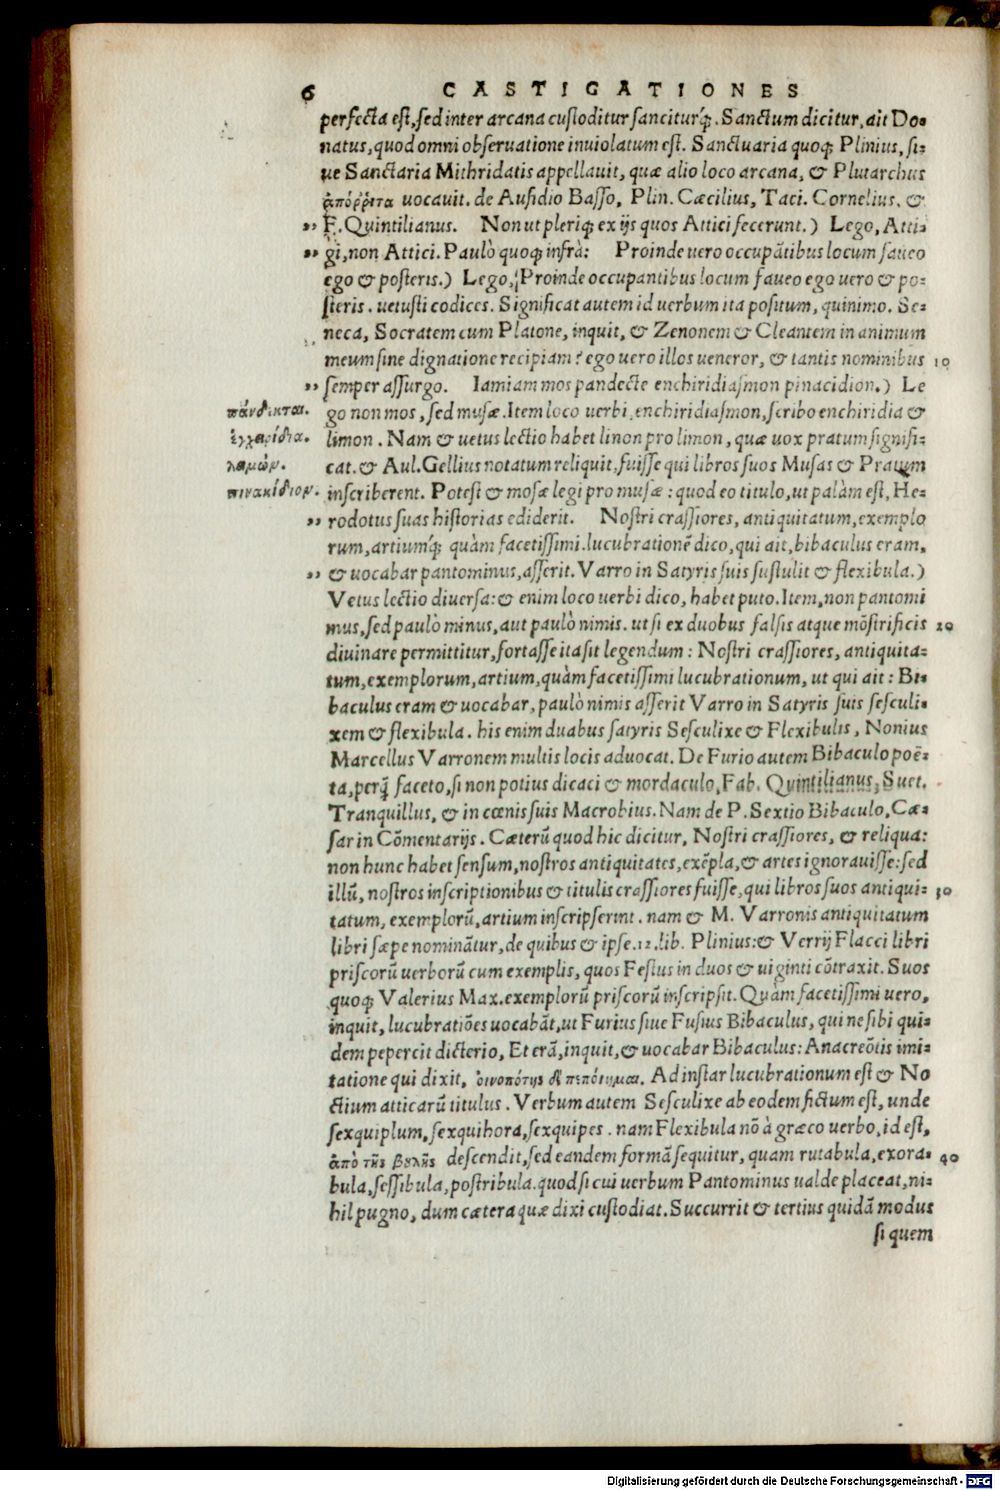 6 CASTIGATIONES
perfecta est, sed inter arcana custoditur sanciturq́;. Sanctum dicitur, ait Do-
natus, quod omni obseruatione inuiolatum est. Sanctuaria quoq; Plinius, si-
ue Sanctaria Mithridatis appellauit, quæ alio loco arcana, & Plutarchus
ἀπόῤῥητα uocauit. de Aufidio Basso, Plin. Cæcilius, Taci. Cornelius, &
„ F. Quintilianus. Non ut pleriq; ex ijs quos Attici fecerunt.) Lego, Atti-
„ gi, non Attici. Paulò quoq; infrà: Proinde uero occupãtibus locum faueo
ego & posteris.) Lego, Proinde occupantibus locum faueo ego uero & po-
steris. uetusti codices. Significat autem id uerbum ita positum, quinimo. Se-
neca, Socratem cum Platone, inquit, & Zenonem & Cleantem in animum
meum sine dignatione recipiam? ego uero illos ueneror, & tantis nominibus 10
„ semper assurgo. Iam iam mos pandecte enchiridiasmon pinacidion.) Le
πάνδεκται. go non mos, sed musæ. Item loco uerbi, enchiridiasmon, scribo enchiridia &
ἐγχειρίδια. limon. Nam & uetus lectio habet linon pro limon, quæ uox pratum signifi-
λειμών. cat. & Aul. Gellius notatum reliquit, fuisse qui libros suos Musas & Pratum
πινακίδιον. inscriberent. Potest & mosæ legi pro musæ: quod eo titulo, ut palàm est, He-
„ rodotus suas historias ediderit. Nostri crassiores, antiquitatum, exemplo
rum, artiumq́; quàm facetissimi. lucubrationẽ dico, qui ait, bibaculus eram,
„ & uocabar pantominus, asserit. Varro in Satyris suis sustulit & flexibula.)
Vetus lectio diuersa: & enim loco uerbi dico, habet puto. Item, non pantomi
mus, sed paulò minus, aut paulò nimis. ut si ex duobus falsis atque mõstrificis 20
diuinare permittitur, fortasse ita sit legendum: Nostri crassiores, antiquita-
tum, exemplorum, artium, quàm facetissimi lucubrationum, ut qui ait: Bi-
baculus eram & uocabar, paulò nimis asserit Varro in Satyris suis sesculi-
xem & flexibula. his enim duabus satyris Sesculixe & Flexibulis, Nonius
Marcellus Varronem multis locis aduocat. De Furio autem Bibaculo poë-
ta, perq̃ faceto, si non potius dicaci & mordaculo, Fab. Quintilianus, Suet.
Tranquillus, & in cœnis suis Macrobius. Nam de P. Sextio Bibaculo, Cæ-
sar in Cõmentarijs. Cæterũ quod hic dicitur, Nostri crassiores, & reliqua:
non hunc habet sensum, nostros antiquitates, exẽpla, & artes ignorauisse: sed
illũ, nostros inscriptionibus & titulis crassiores fuisse, qui libros suos antiqui- 30
tatum, exemplorũ, artium inscripserint. nam & M. Varronis antiquitatum
libri sæpe nominãtur, de quibus & ipse. 12. lib. Plinius: & Verrij Flacci libri
priscorũ uerborũ cum exemplis, quos Festus in duos & uiginti cõtraxit. Suos
quoq; Valerius Max. exemplorũ priscorũ inscripsit. Quàm facetissimi uero,
inquit, lucubratiões uocabãt, ut Furius siue Fusius Bibaculus, qui ne sibi qui-
dem pepercit dicterio, Et erã, inquit, & uocabar Bibaculus: Anacreõtis imi-
tatione qui dixit, οἰνοπότης δὲ πεπότημαι. Ad instar lucubrationum est & No
ctium atticarũ titulus. Verbum autem Sesculixe ab eodem fictum est, unde
sexquiplum, sexquihora, sexquipes. nam Flexibula nõ à græco uerbo, id est,
ἀπὸ τῆς βουλῆς descendit, sed eandem formã sequitur, quam rutabula, exora- 40
bula, sessibula, postribula. quod si cui uerbum Pantominus ualde placeat, ni-
hil pugno, dum cætera quæ dixi custodiat. Succurrit & tertius quidã modus
si quem
Digitalisierung gefördert durch die Deutsche Forschungsgemeinschaft - DFG